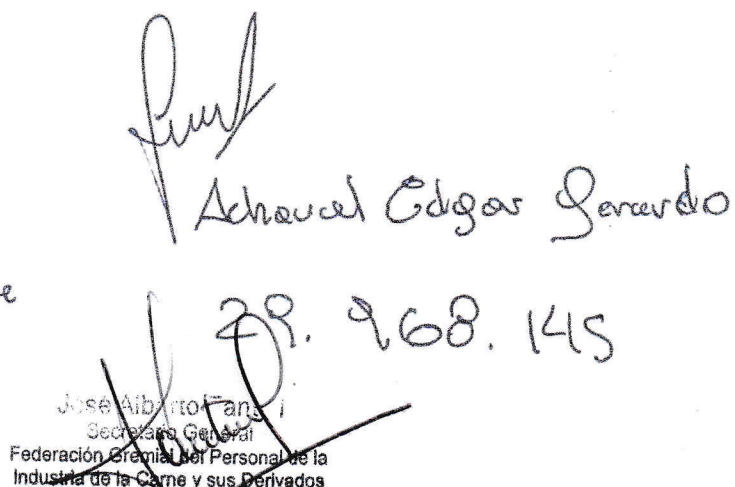 Edgar Gerardo
29.968.145
José Alberto Fan
Secretario General
Federación Gremial del Personal de la
Industria de la Carne y sus Derivados